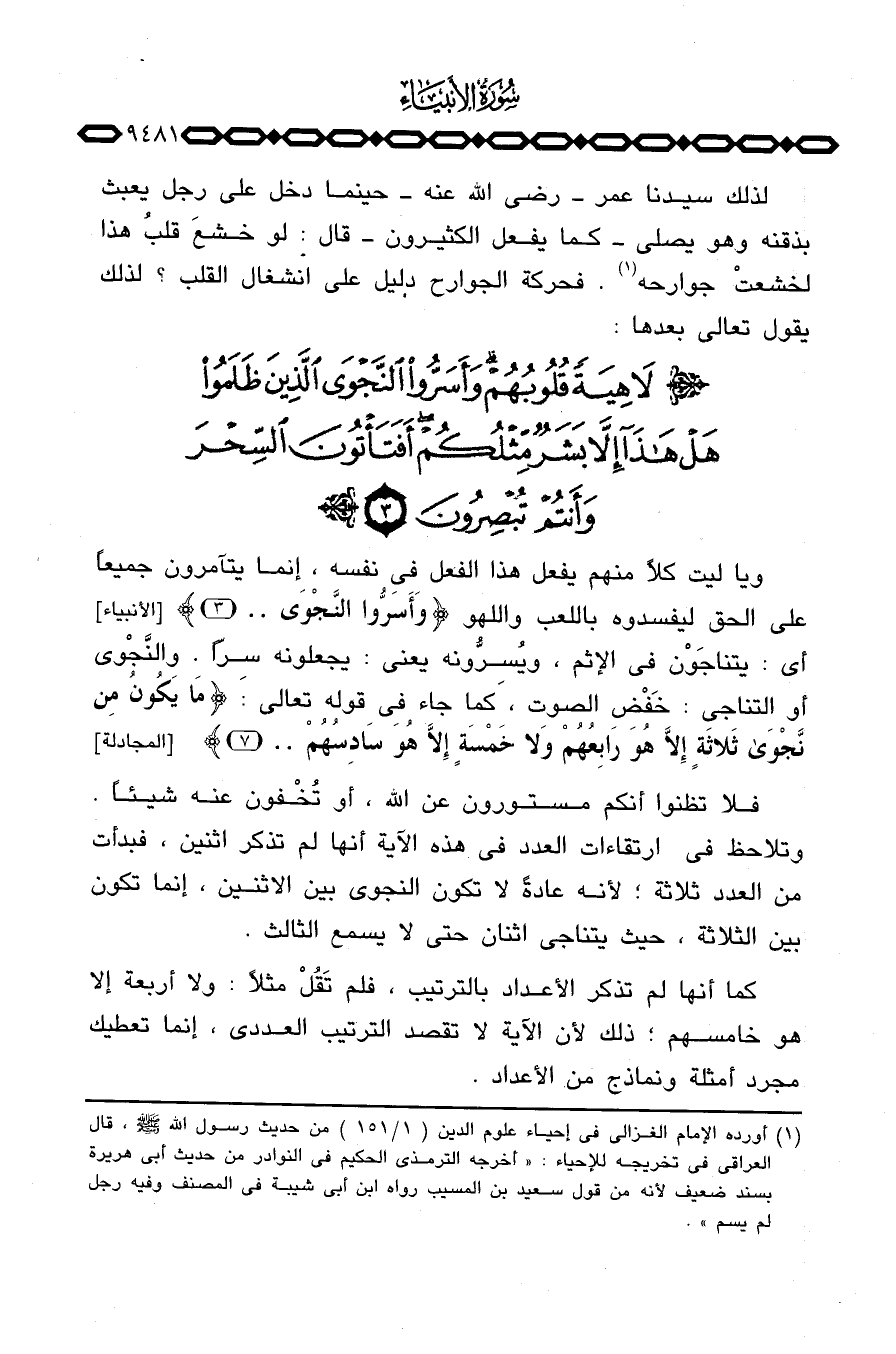 سُورَةُ الأنبيَاء
٩٤٨١
لذلك سيدنا عمر - رضى الله عنه - حينما دخل على رجل يعبث
بذقنه وهو يصلى - كما يفعل الكثيرون - قال : لو خشعَ قلبُ هذا
لخشعتْ جوارحه(١) . فحركة الجوارح دليل على انشغال القلب ؟ لذلك
يقول تعالى بعدها :
﴿ لَاهِيَةً قُلُوبُهُمْ ۗ وَأَسَرُّوا۟ ٱلنَّجْوَى ٱلَّذِينَ ظَلَمُوا۟
هَلْ هَـٰذَآ إِلَّا بَشَرٌ مِّثْلُكُمْ ۖ أَفَتَأْتُونَ ٱلسِّحْرَ
وَأَنتُمْ تُبْصِرُونَ ٣ ﴾
ويا ليت كلاً منهم يفعل هذا الفعل فى نفسه ، إنما يتآمرون جميعاً
على الحق ليفسدوه باللعب واللهو ﴿ وَأَسَرُّوا النَّجْوَى .. (٣) ﴾ [الأنبياء]
أى : يتناجَوْن فى الإثم ، ويُسرُّونه يعنى : يجعلونه سراً . والنَّجْوى
أو التناجى : خَفْض الصوت ، كما جاء فى قوله تعالى : ﴿ مَا يَكُونُ مِن
نَّجْوَىٰ ثَلاثَةٍ إِلاَّ هُوَ رَابِعُهُمْ وَلا خَمْسَةٍ إِلاَّ هُوَ سَادِسُهُمْ .. (٧) ﴾ [المجادلة]
فلا تظنوا أنكم مستورون عن الله ، أو تُخْفون عنه شيئاً .
وتلاحظ فى ارتقاءات العدد فى هذه الآية أنها لم تذكر اثنين ، فبدأت
من العدد ثلاثة ؛ لأنه عادةً لا تكون النجوى بين الاثنين ، إنما تكون
بين الثلاثة ، حيث يتناجى اثنان حتى لا يسمع الثالث .
كما أنها لم تذكر الأعداد بالترتيب ، فلم تَقُلْ مثلاً : ولا أربعة إلا
هو خامسهم ؛ ذلك لأن الآية لا تقصد الترتيب العددى ، إنما تعطيك
مجرد أمثلة ونماذج من الأعداد .
(١) أورده الإمام الغزالى فى إحياء علوم الدين ( ١/ ١٥١ ) من حديث رسول الله ﷺ ، قال
العراقى فى تخريجه للإحياء : « أخرجه الترمذى الحكيم فى النوادر من حديث أبى هريرة
بسند ضعيف لأنه من قول سعيد بن المسيب رواه ابن أبى شيبة فى المصنف وفيه رجل
لم يسم » .